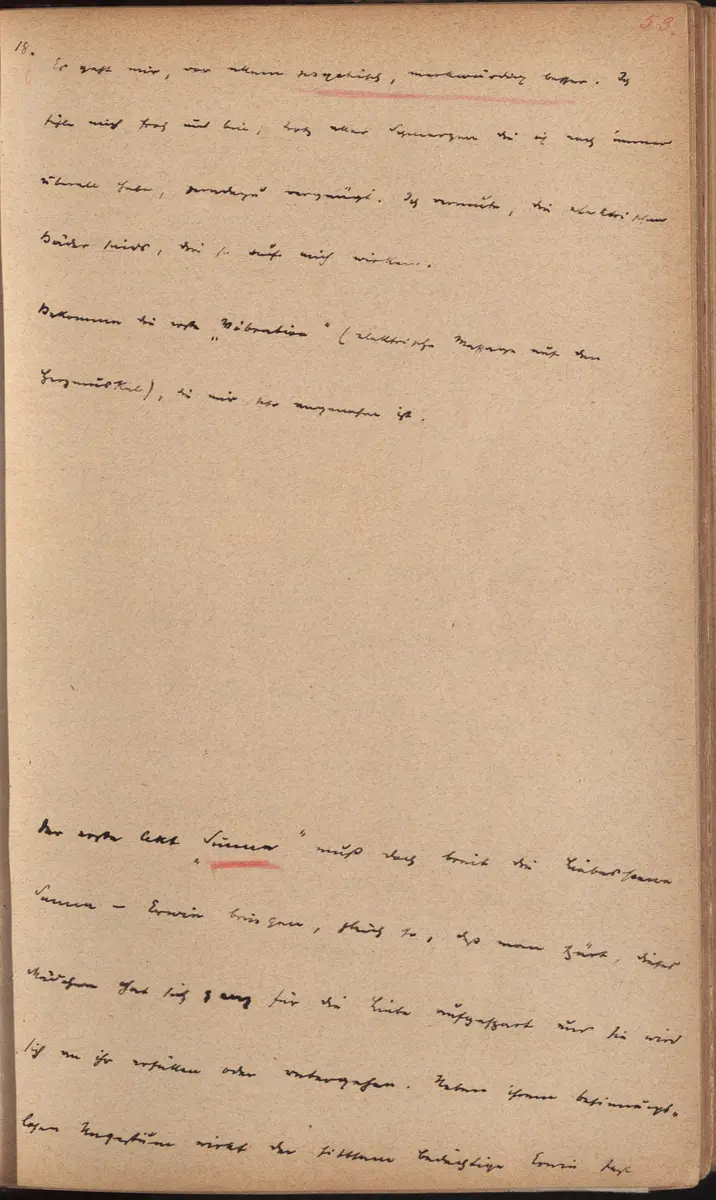 53.
18.
Es geht mir, vor allem psychisch, merkwürdig besser. Ich
fühle mich froh und bin, trotz aller Schmerzen die ich noch immer
überall habe, geradezu vergnügt. Ich vermute, die elektrischen
Bäder sinds, die so auf mich wirken.
Bekomme die erste „Vibration“ (elektrische Massage auf den
Herzmuskel), die mir sehr angenehm ist.
Der erste Akt „Sanna“ muß doch breit die Liebesscene
Sanna – Erwin bringen, gleich so, daß man spürt, dieses
Mädchen hat sich ganz für die Liebe aufgespart und sie wird
sich an ihr erfüllen oder untergehen. Neben ihrem besinnungs-
losen Ungestüm wirkt der sittsam bedächtige Erwin fast